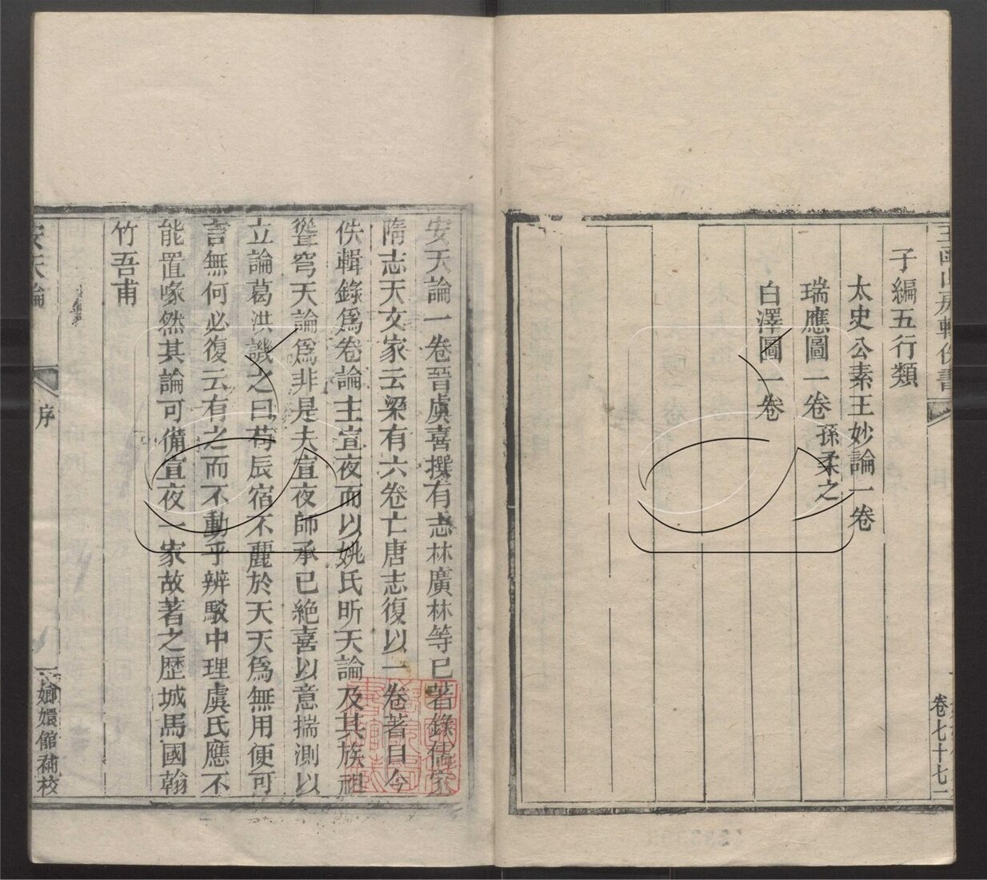 玉函山房輯佚書
卷七十七
子編五行類
太史公素王妙論一卷
瑞應圖一卷 孫柔之
白澤圖一卷
安天論一卷晉虞喜撰有志林廣林等已著錄儒家
隋志天文家云梁有六卷亡唐志復以一卷著目今
佚輯錄爲卷論主宣夜而以姚氏昕天論及其族祖
聳穹天論爲非是夫宣夜師承已絕喜以意揣測以
立論葛洪譏之曰苟辰宿不麗於天天爲無用便可
言無何必復云有之而不動乎辨駁中理虞氏應不
能置喙然其論可備宣夜一家故著之歷城馬國翰
竹吾甫
安天論
序
一
嫏嬛館補校